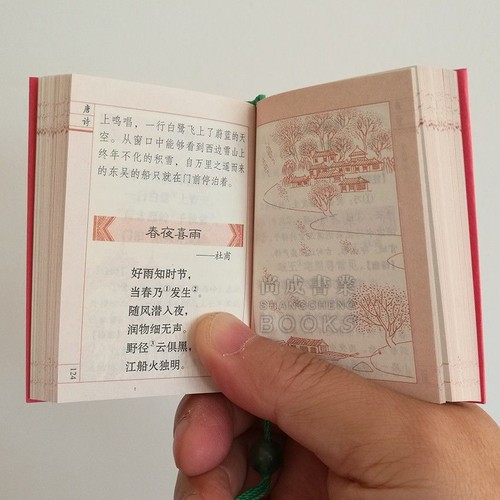 唐诗
上鸣唱，一行白鹭飞上了蔚蓝的天
空。从窗口中能够看到西边雪山上
终年不化的积雪，自万里之遥而来
的东吴的船只就在门前停泊着。
春夜喜雨
——杜甫
好雨知时节，
当春乃①发生②。
随风潜入夜，
润物细无声。
野径③云俱黑，
江船火独明。
124
尚成書業
SHANGCHENG
BOOKS